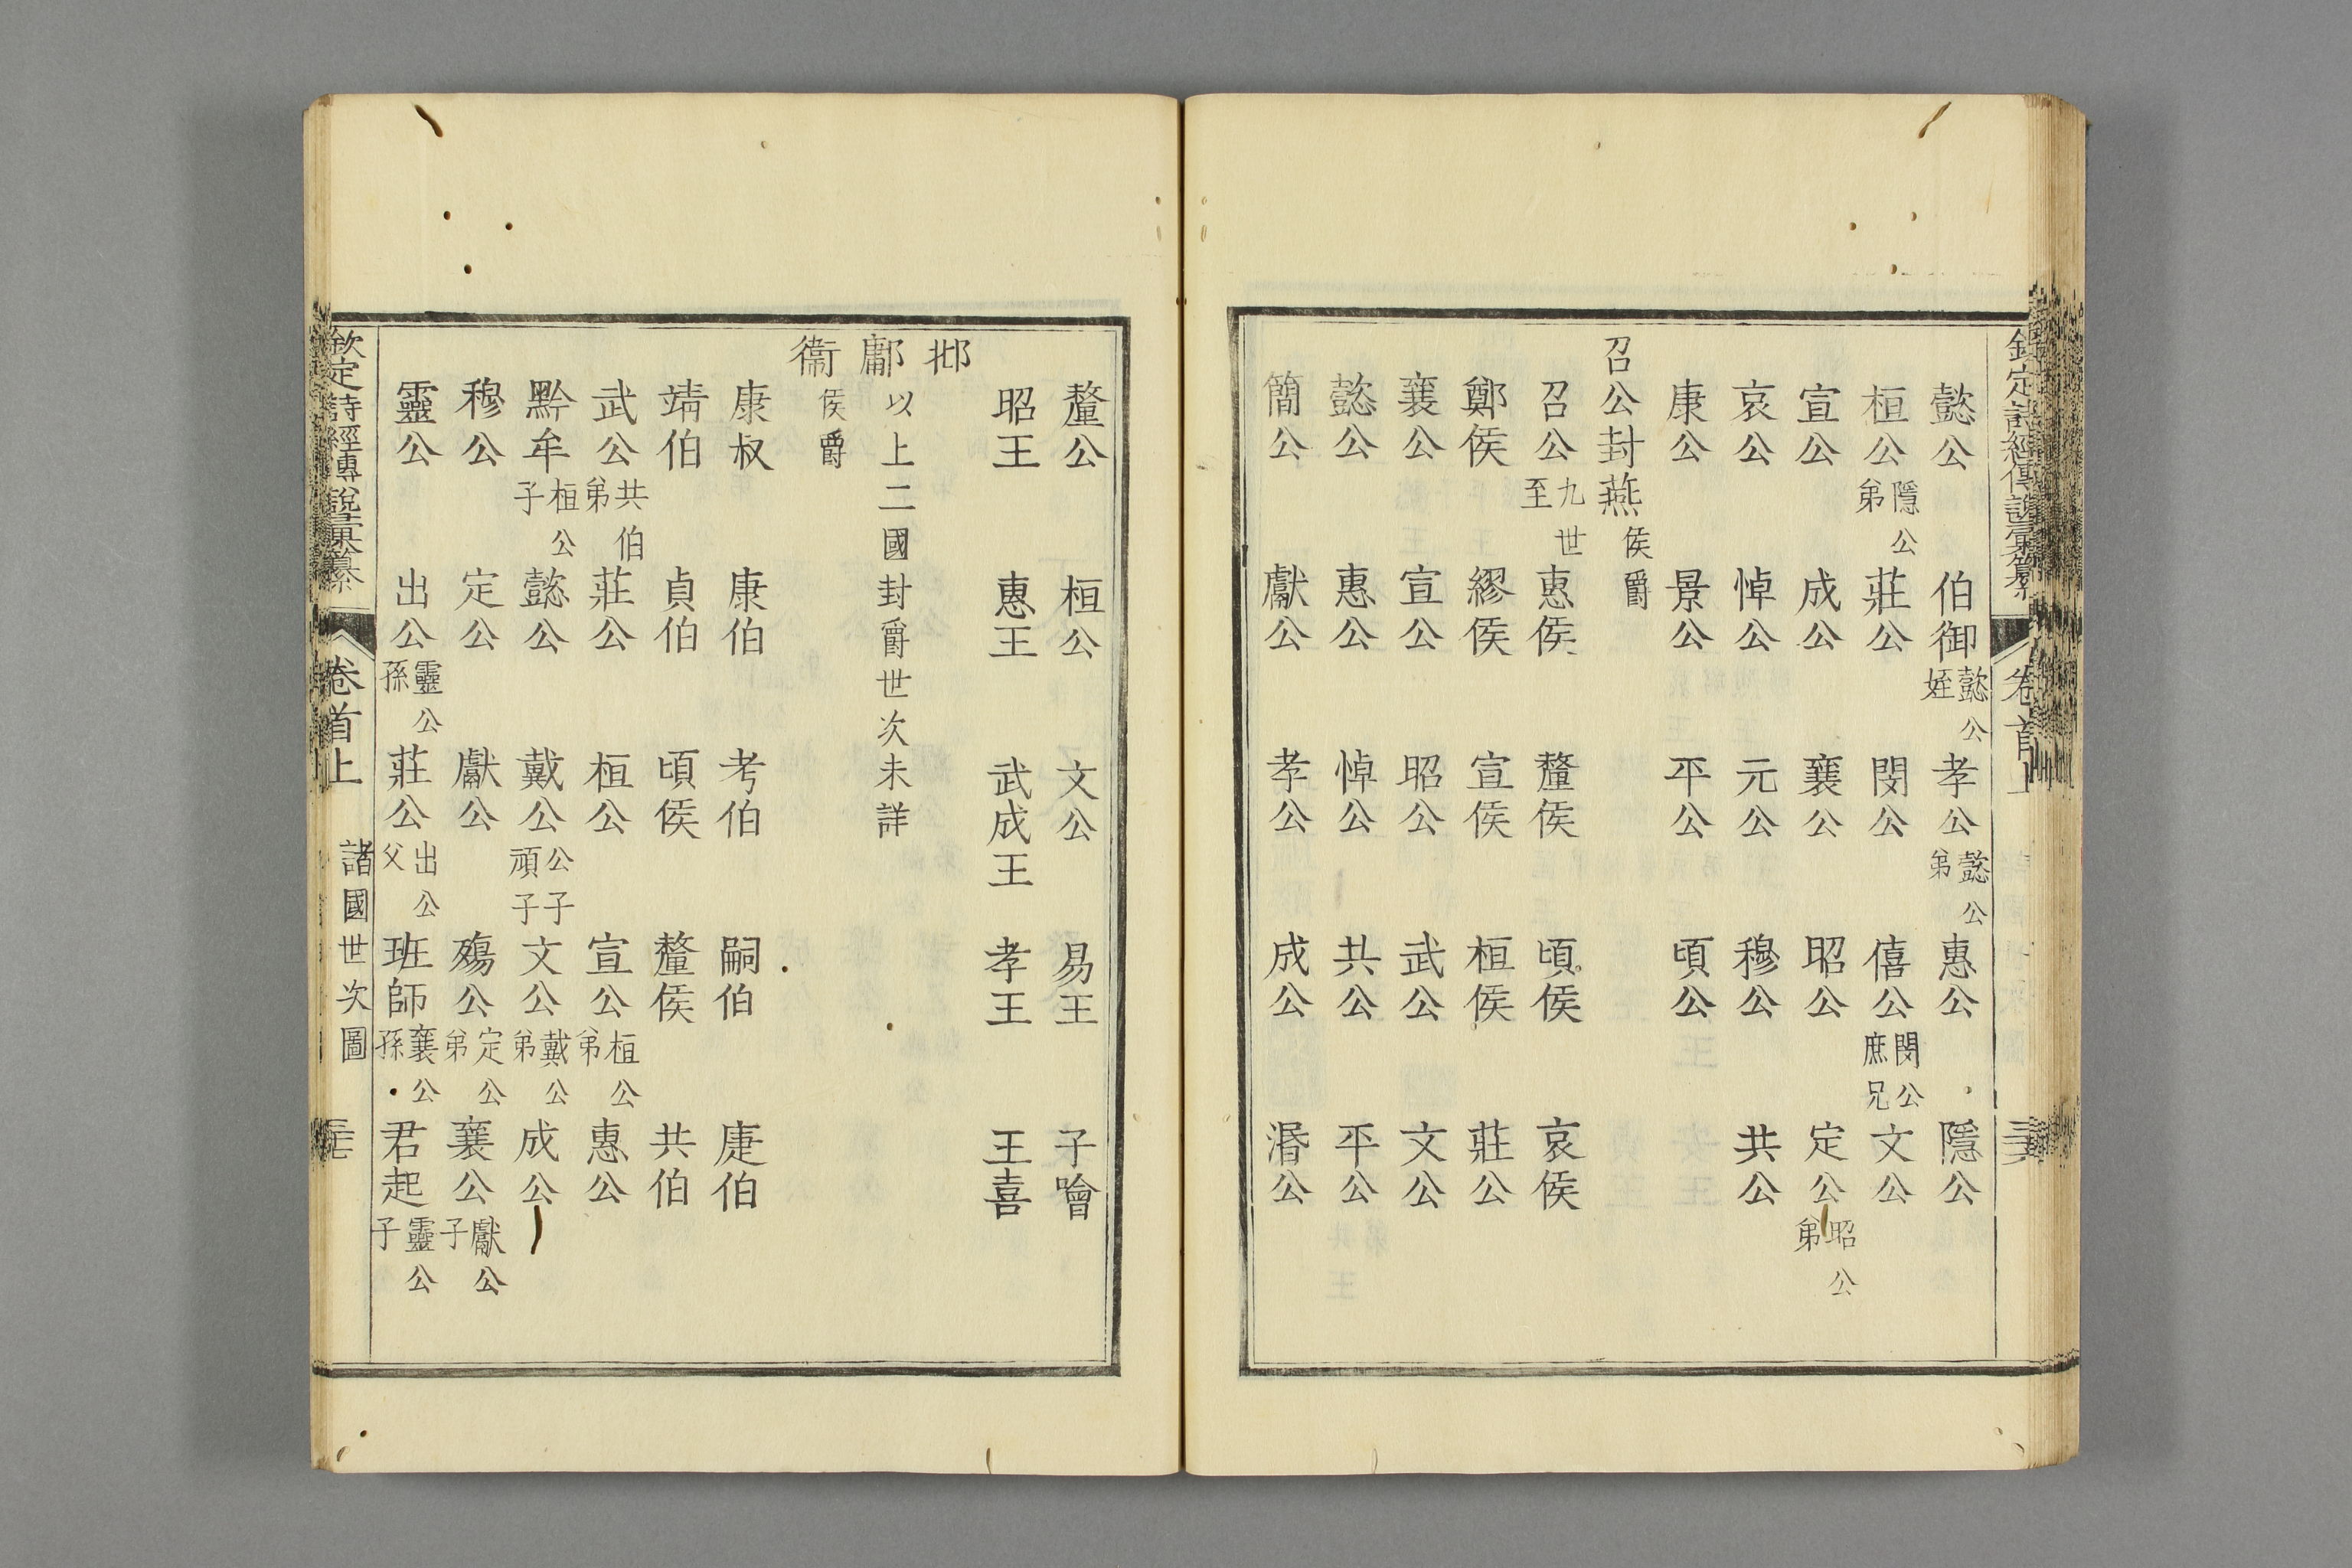 懿公 伯御懿公姪 孝公懿公弟 惠公 隱公
桓公隱公弟 莊公 閔公 僖公閔公庶兄 文公
宣公 成公 襄公 昭公 定公昭公弟
哀公 悼公 元公 穆公 共公
康公 景公 平公 頃公
召公封燕侯爵
召公九世至 惠侯 釐侯 頃侯 哀侯
鄭侯 繆侯 宣侯 桓侯 莊公
襄公 宣公 昭公 武公 文公
懿公 惠公 悼公 共公 平公
簡公 獻公 孝公 成公 湣公
釐公 桓公 文公 易王 子噲
昭王 惠王 武成王 孝王 王喜
邶
鄘以上二國封爵世次未詳
衞侯爵
康叔 康伯 考伯 嗣伯 疌伯
靖伯 貞伯 頃侯 釐侯 共伯
武公共伯弟 莊公 桓公 宣公桓公弟 惠公
黔牟桓公子 懿公 戴公公子頑子 文公戴公弟 成公
穆公 定公 獻公 殤公定公弟 襄公獻公子
靈公 出公靈公孫 莊公出公父 班師襄公孫 君起靈公子
欽定詩經傳說彙纂 卷首上 諸國世次圖